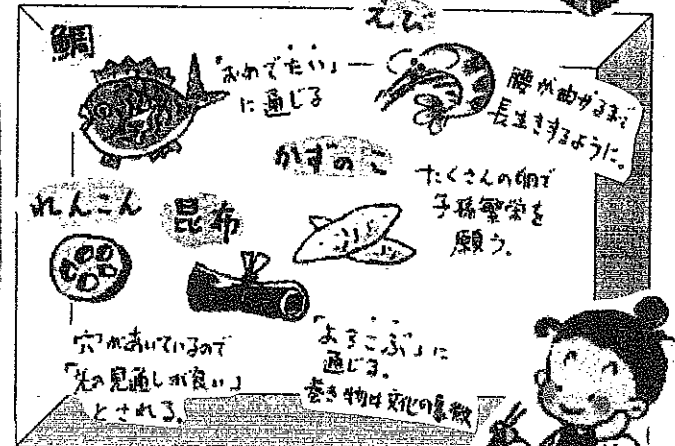 鯛
「おめでたい」
に通じる
えび
腰が曲がるまで
長生きするように。
かずのこ
たくさんの卵で
子孫繁栄を
願う。
れんこん
穴があいているので
「先の見通しが良い」
とされる。
昆布
「よろこぶ」に
通じる。
巻き物は文化の象徴